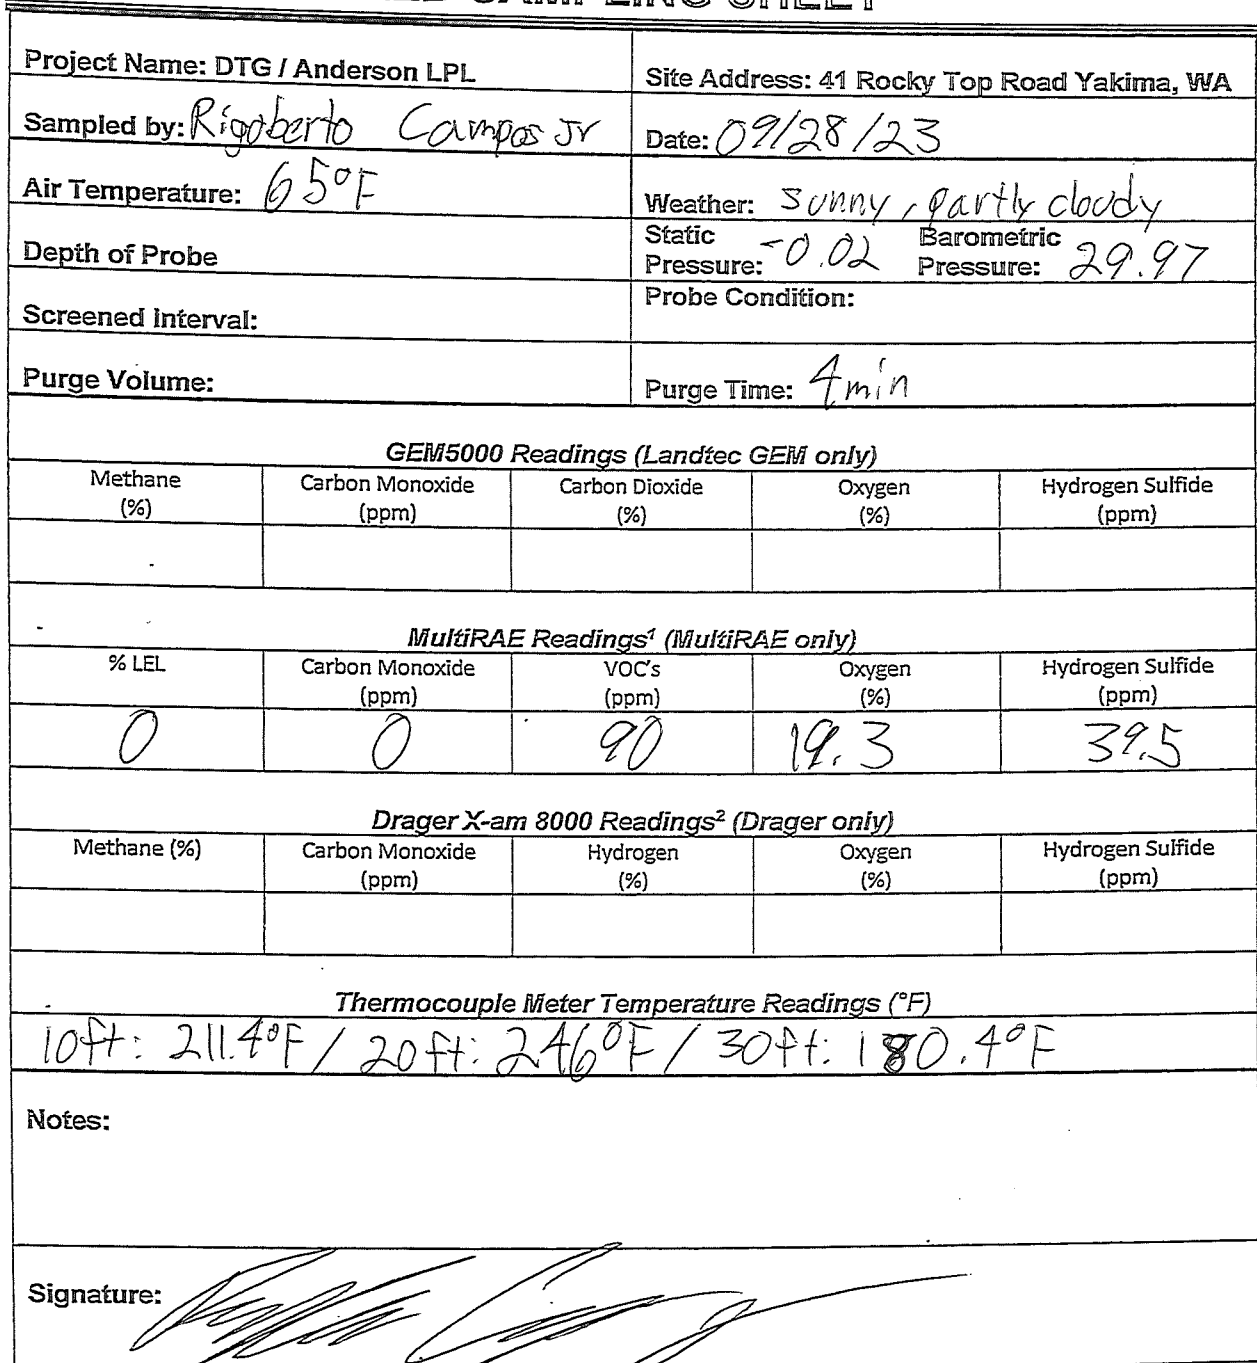 Project Name: DTG / Anderson LPL
Site Address: 41 Rocky Top Road Yakima, WA
Sampled by: Rigoberto Campos Jr
Date: 09/28/23
Air Temperature: 65°F
Weather: sunny, partly cloudy
Depth of Probe
Static Pressure: -0.02 Barometric Pressure: 29.97
Screened Interval:
Probe Condition:
Purge Volume:
Purge Time: 4 min
GEM5000 Readings (Landtec GEM only)
Methane (%) Carbon Monoxide (ppm) Carbon Dioxide (%) Oxygen (%) Hydrogen Sulfide (ppm)
MultiRAE Readings¹ (MultiRAE only)
% LEL Carbon Monoxide (ppm) VOC's (ppm) Oxygen (%) Hydrogen Sulfide (ppm)
0 0 90 19.3 39.5
Drager X-am 8000 Readings² (Drager only)
Methane (%) Carbon Monoxide (ppm) Hydrogen (%) Oxygen (%) Hydrogen Sulfide (ppm)
Thermocouple Meter Temperature Readings (°F)
10ft: 211.4°F / 20ft: 246°F / 30ft: 180.4°F
Notes:
Signature: